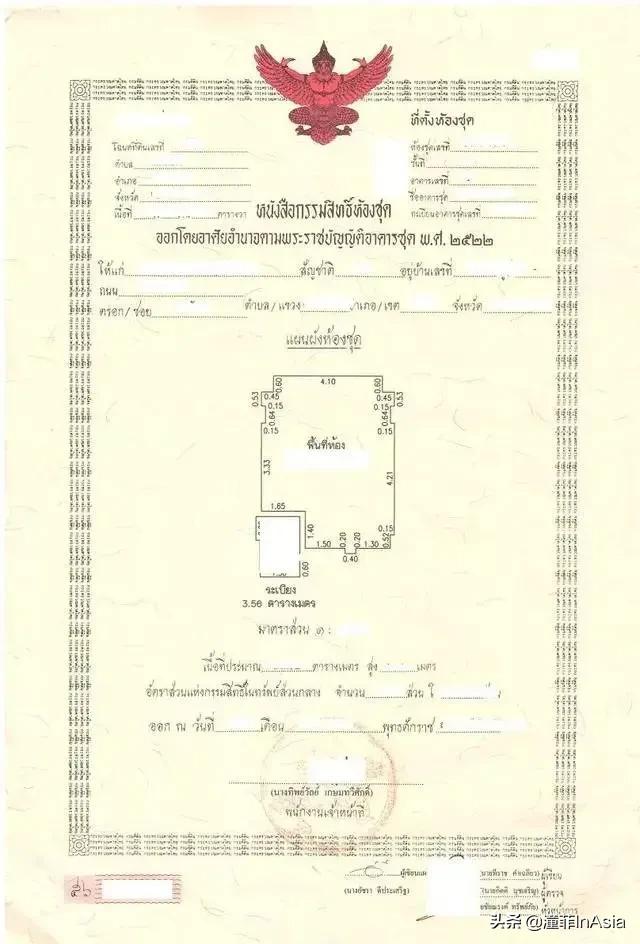 ที่ตั้งห้องชุด
โฉนดที่ดินเลขที่
ห้องชุดเลขที่
ตำบล
ชั้นที่
อำเภอ
อาคารเลขที่
จังหวัด
ชื่ออาคารชุด
เนื้อที่ ตารางวา
ทะเบียนอาคารชุดเลขที่
หนังสือกรรมสิทธิ์ห้องชุด
ออกโดยอาศัยอำนาจตามพระราชบัญญัติอาคารชุด พ.ศ. ๒๕๒๒
ให้แก่ สัญชาติ อยู่บ้านเลขที่
ถนน
ตรอก/ซอย ตำบล/แขวง อำเภอ/เขต จังหวัด
แผนผังห้องชุด
4.10
0.60 0.60
0.53 0.45 0.45 0.53
0.15 0.15
0.64 0.64
0.15 0.15
พื้นที่ห้อง
3.33
4.21
1.65
1.40
0.15
1.50 0.20 0.20 1.30 0.52
0.40
0.60
ระเบียง
3.56 ตารางเมตร
มาตราส่วน ๑ :
เนื้อที่ประมาณ ตารางเมตร สูง เมตร
อัตราส่วนแห่งกรรมสิทธิ์ในทรัพย์ส่วนกลาง จำนวน ส่วน ใ
ออก ณ วันที่ เดือน พุทธศักราช
(นางทิพย์วัลย์ เกษมทวีศักดิ์)
พนักงานเจ้าหน้าที่
ผู้เขียนแผ
(นางอัชรา ดีประเสริฐ)
ผู้เขียน
ผู้ตรวจ
หัวหน้าการ
头条 @潼菲InAsia